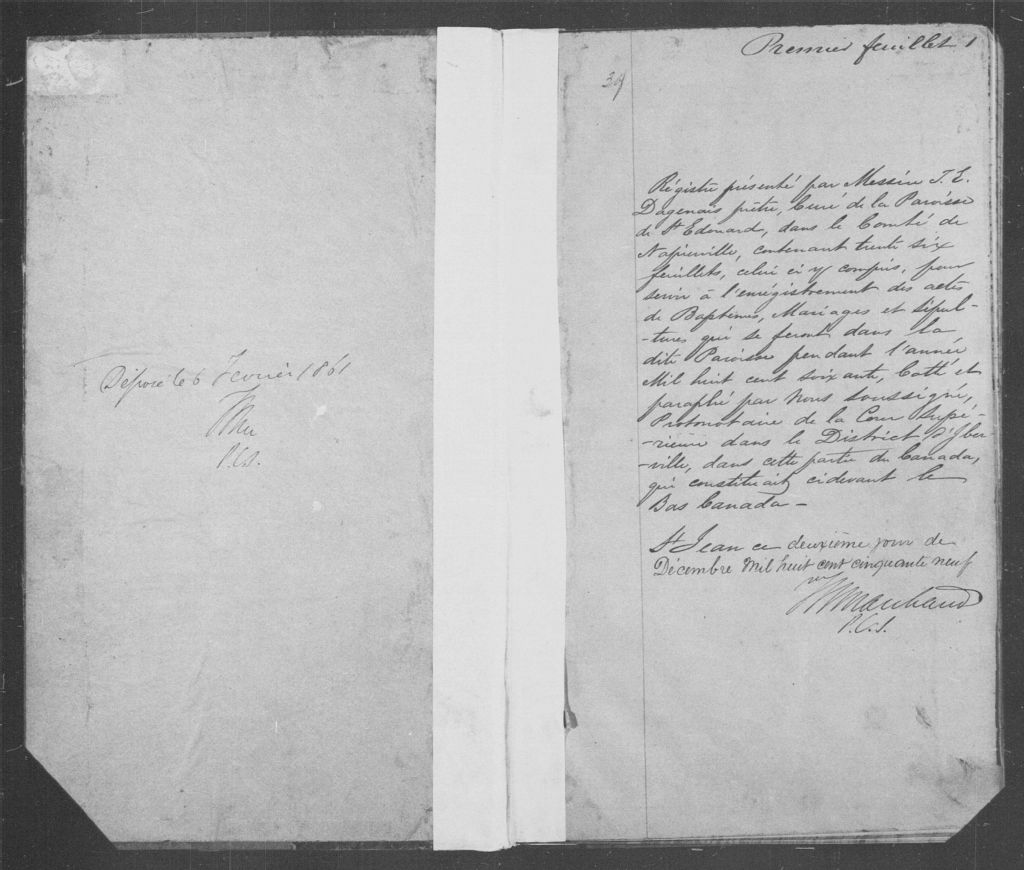 Déposé le 6 Février 1861
P.C.S.
Premier feuillet 1
39
Régistre présenté par Messire J. E.
Dagenais prêtre, Curé de la Paroisse
de St Edouard, dans le Comté de
Napierville, contenant trente six
feuillets, celui ci y compris, pour
servir à l'enrégistrement des actes
de Baptêmes, Mariages et Sépul-
-tures qui se feront dans la
dite Paroisse pendant l'année
Mil huit cent soixante, Cotté et
paraphé par Nous soussigné,
Protonotaire de la Cour Supé-
-rieure dans le District d'Iber-
-ville, dans cette partie du Canada,
qui constituait cidevant le
Bas Canada –
St Jean ce deuxième jour de
Décembre Mil huit cent cinquante neuf
Marchand
P.C.S.